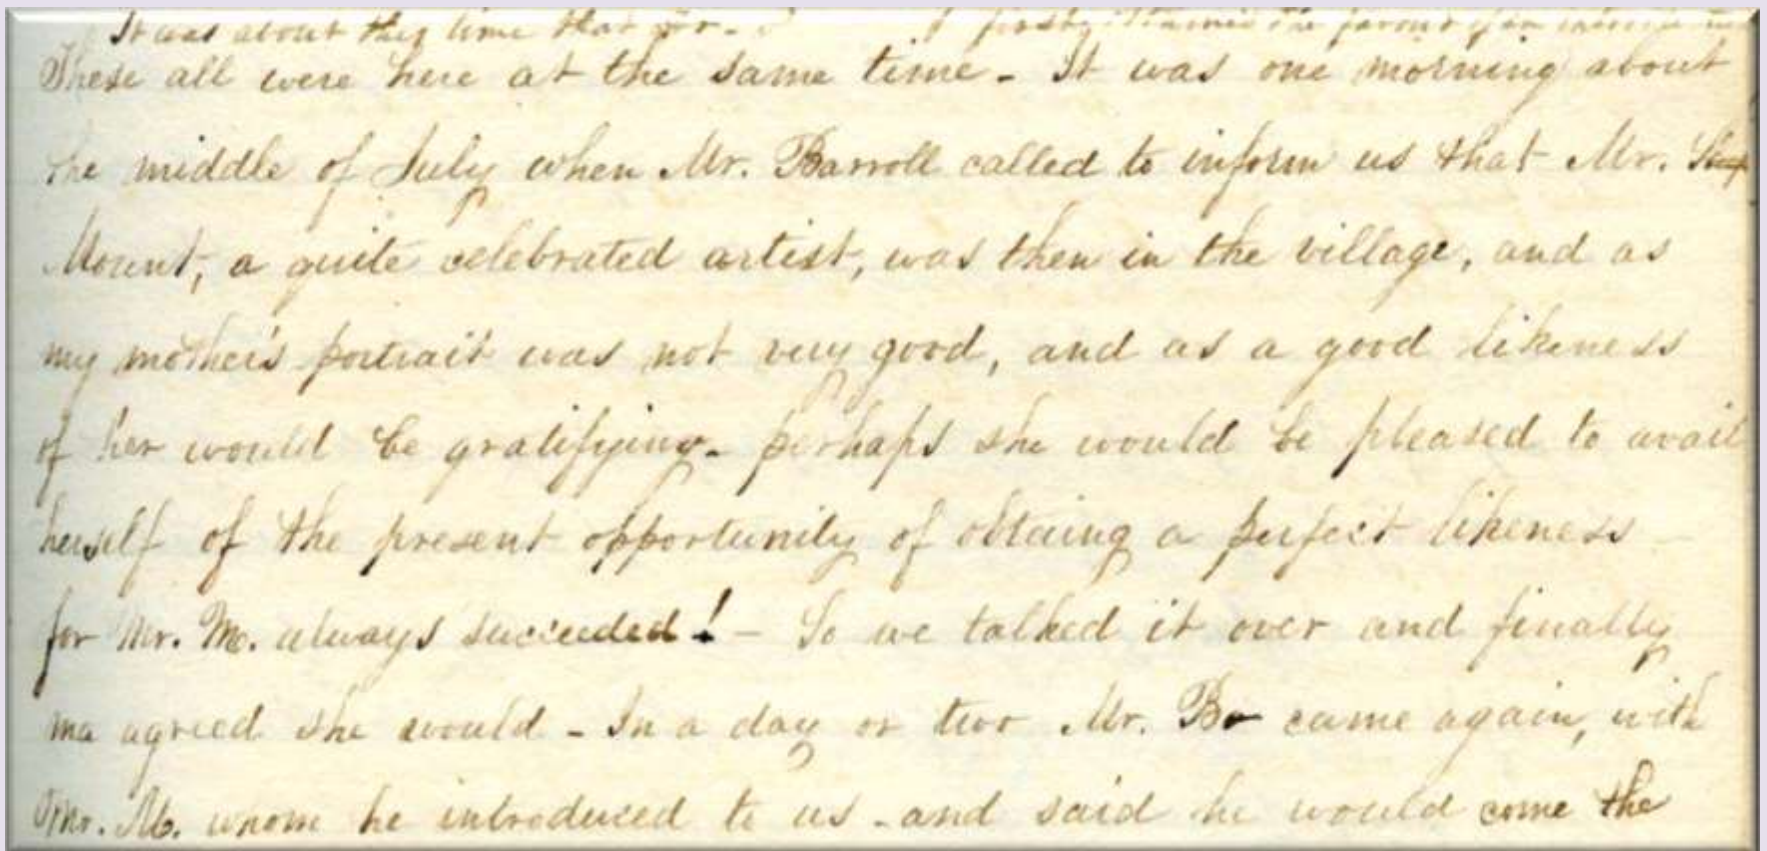 It was about this time that
These all were here at the same time - It was one morning about
the middle of July when Mr. Barroll called to inform us that Mr.
Mount, a quite celebrated artist, was then in the village, and as
my mother's portrait was not very good, and as a good likeness
of her would be gratifying - perhaps she would be pleased to avail
herself of the present opportunity of obtaing a perfect likeness -
for Mr. Mo. always succeeded! - So we talked it over and finally
ma agreed she would - In a day or two Mr. Bo came again, with
Mr. Mo. whom he introduced to us - and said he would come the